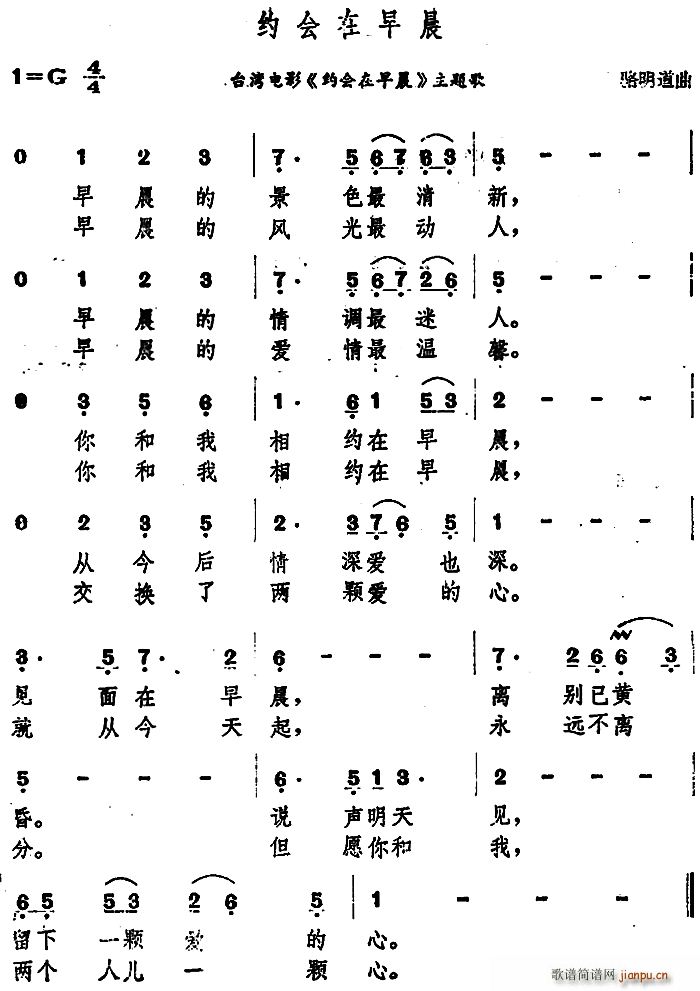 约会在早晨
1=G 4/4 台湾电影《约会在早晨》主题歌 骆明道曲
0 1 2 3 | 7· 5 6 7 6 3 | 5 - - - |
早晨的景色最清新,
早晨的风光最动人,
0 1 2 3 | 7· 5 6 7 2 6 | 5 - - - |
早晨的情调最迷人。
早晨的爱情最温馨。
0 3 5 6 | 1· 6 1 5 3 | 2 - - - |
你和我相约在早晨,
你和我相约在早晨,
0 2 3 5 | 2· 3 7 6 5 | 1 - - - |
从今后情深爱也深。
交换了两颗爱的心。
3· 5 7· 2 | 6 - - - | 7· 2 6 6 3 |
见面在早晨,离别已黄
就从今天起,永远不离
5 - - - | 6· 5 1 3· | 2 - - - |
昏。说声明天见,
分。但愿你和我,
6 5 5 3 2 6 5 | 1 - - - ‖
留下一颗爱的心。
两个人儿一颗心。
歌谱简谱网
jianpu.cn